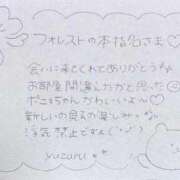 フォレストの本指名さま♡
会いに来てくれてありがとう
お部屋間違えたかと思った
ポニョちゃんかわいいよ〜♡
新しいの見るの楽しみっ
浮気禁止ですん
yuzuru